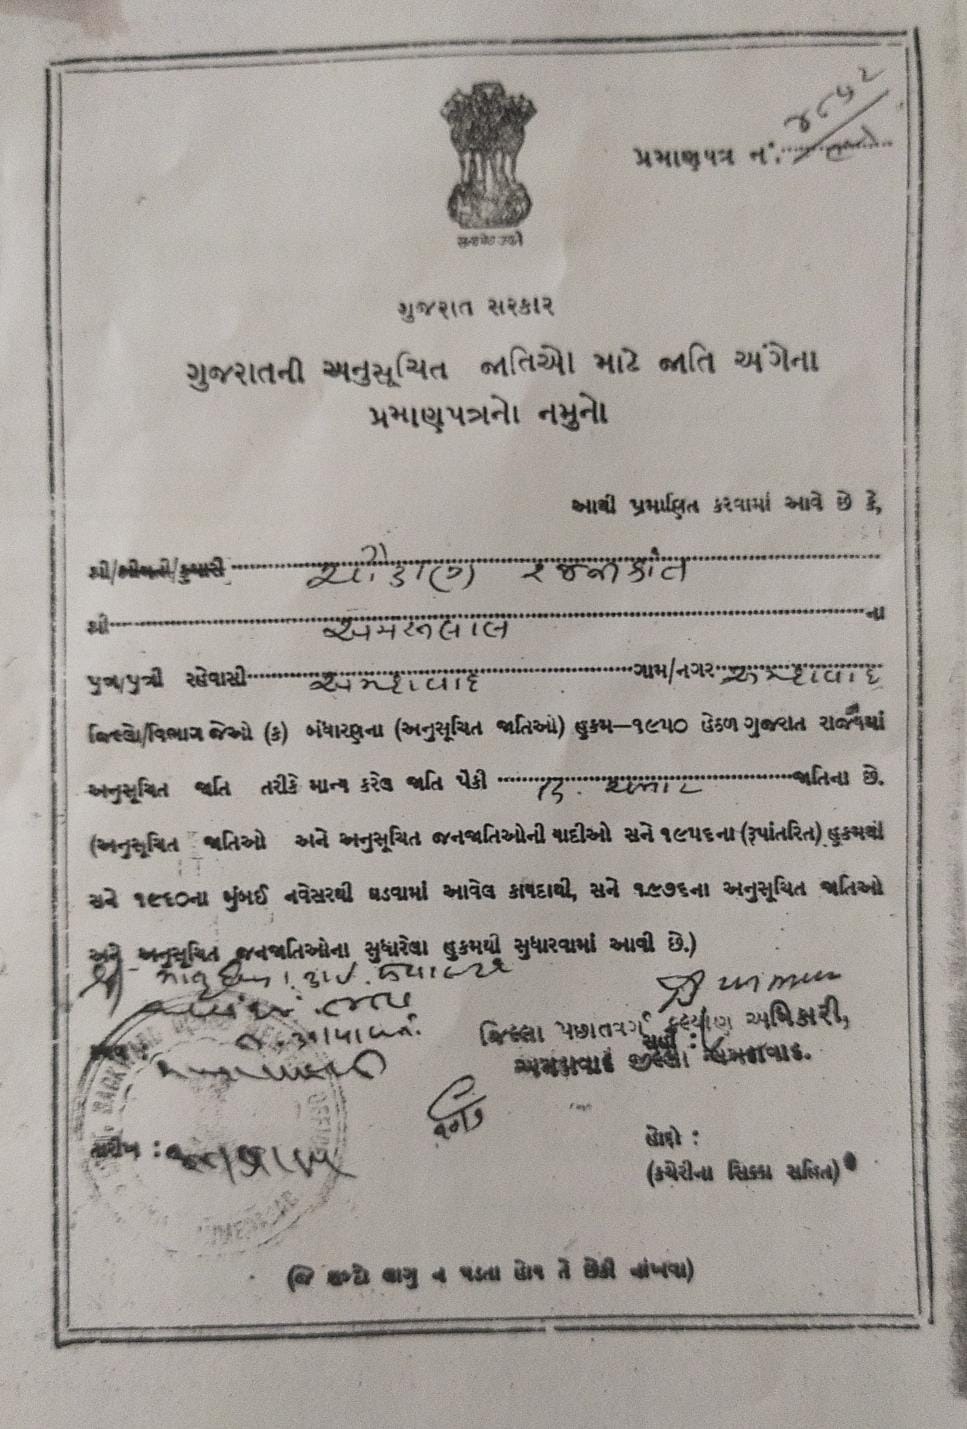 પ્રમાણપત્ર નં.
ગુજરાત સરકાર
ગુજરાતની અનુસૂચિત જાતિઓ માટે જાતિ અંગેના
પ્રમાણપત્રનો નમુનો
આથી પ્રમાણિત કરવામાં આવે છે કે,
શ્રી/શ્રીમતી/કુમારી રજનીકાંત
શ્રી અમરતલાલ ના
પુત્ર/પુત્રી રહેવાસી અમદાવાદ ગામ/નગર અમદાવાદ
જિલ્લો/વિભાગ જેઓ (ક) બંધારણના (અનુસૂચિત જાતિઓ) હુકમ—૧૯૫૦ હેઠળ ગુજરાત રાજ્યમાં
અનુસૂચિત જાતિ તરીકે માન્ય કરેલ જાતિ પૈકી હિ. ચમાર જાતિના છે.
(અનુસૂચિત જાતિઓ અને અનુસૂચિત જનજાતિઓની યાદીઓ સને ૧૯૫૬ના (રૂપાંતરિત) હુકમથી
સને ૧૯૬૦ના મુંબઈ નવેસરથી ઘડવામાં આવેલ કાયદાથી, સને ૧૯૭૬ના અનુસૂચિત જાતિઓ
અને અનુસૂચિત જનજાતિઓના સુધારેલા હુકમથી સુધારવામાં આવી છે.)
જિલ્લા પછાતવર્ગ કલ્યાણ અધિકારી,
સહી :
અમદાવાદ જીલ્લા અમદાવાદ.
તારીખ :
હોદ્દો :
(કચેરીના સિક્કા સહિત)
(જે શબ્દો લાગુ ન પડતા હોય તે છેકી નાંખવા)